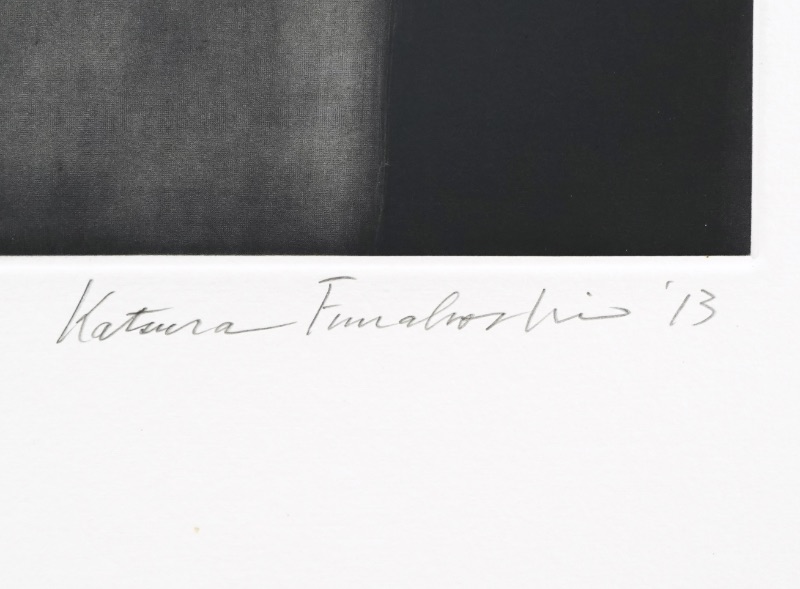 Katsura Funakoshi '13